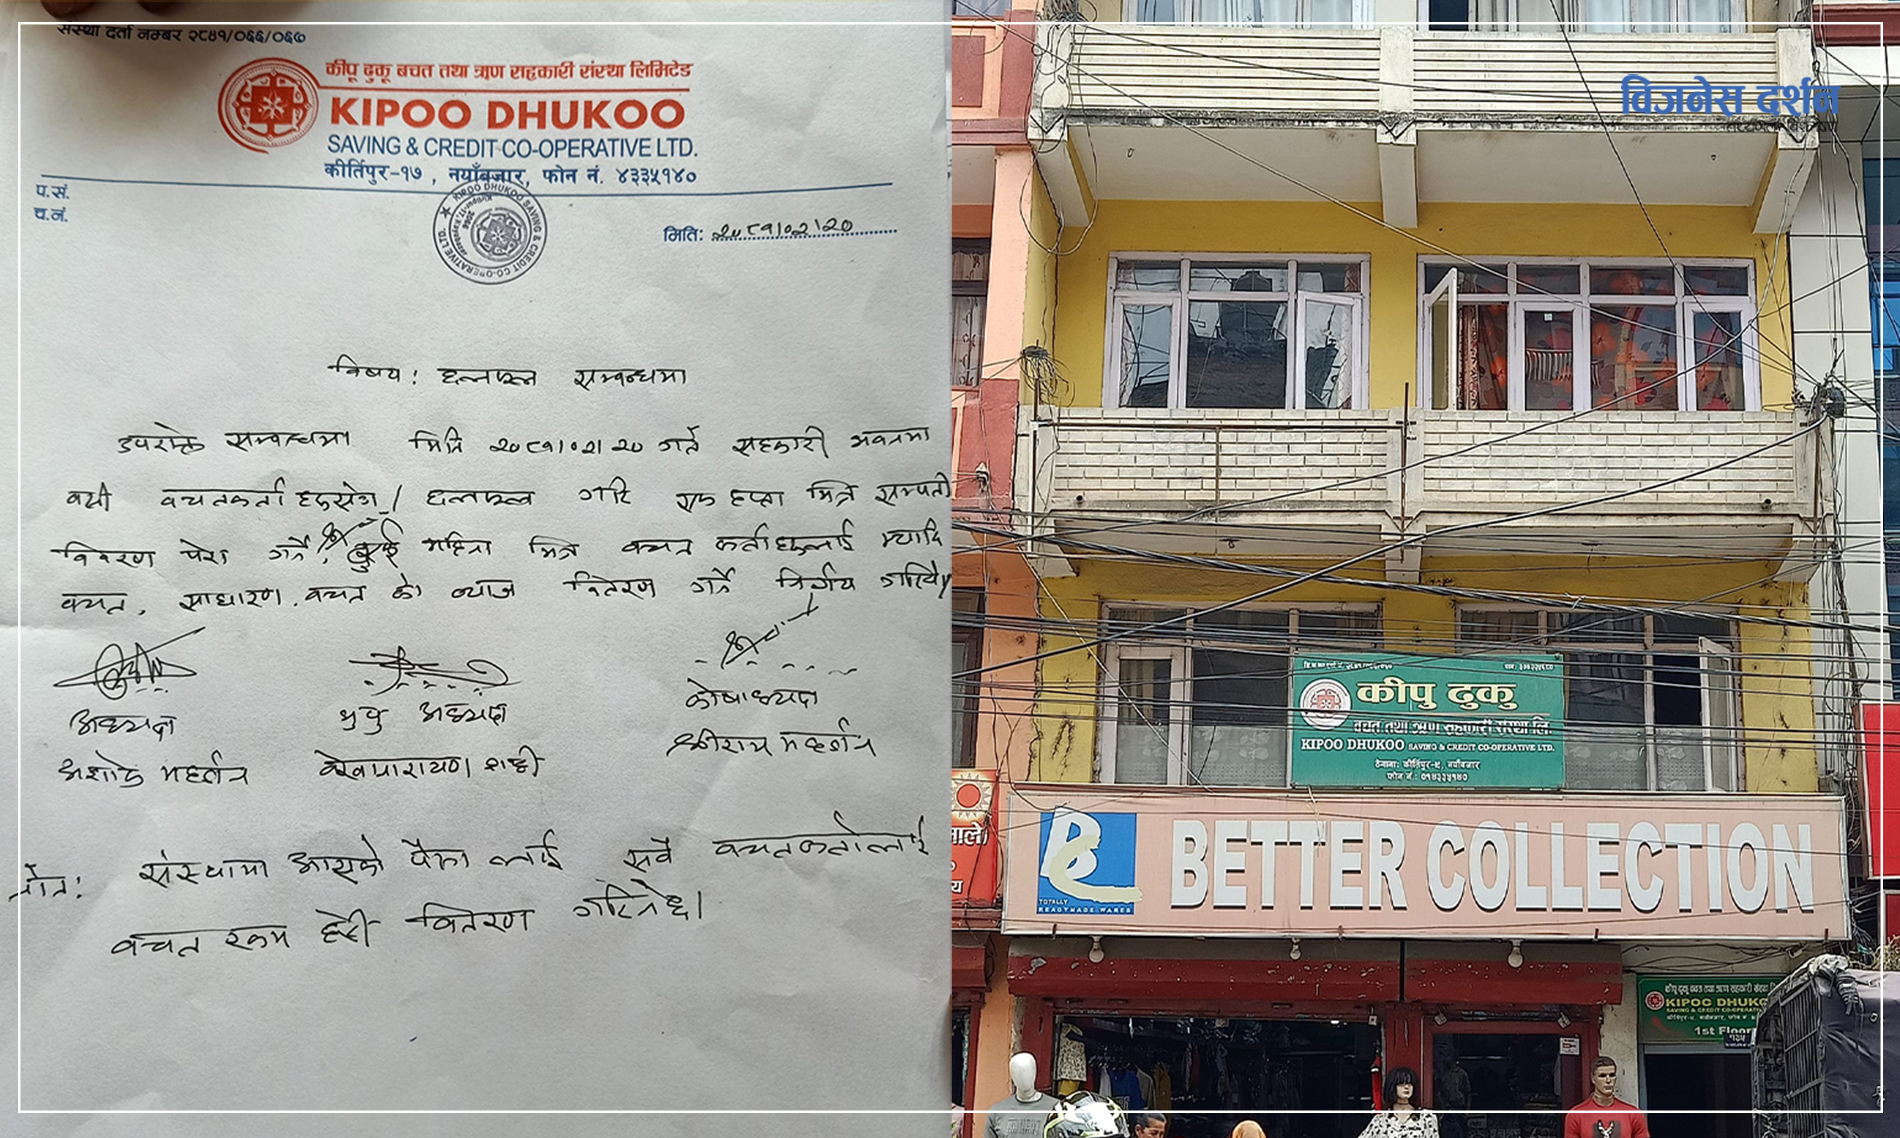 संस्था दर्ता नम्बर २८४१/०६६/०६७
कीपू ढुकू बचत तथा ऋण सहकारी संस्था लिमिटेड
KIPOO DHUKOO
SAVING & CREDIT CO-OPERATIVE LTD.
कीर्तिपुर-१७, नयाँबजार, फोन नं. ४३३५१४०
प.सं.
च.नं.
KIPOO DHUKOO SAVING & CREDIT CO-OPERATIVE LTD.
मितिः २०८१।०२।२०
विषय: छलफल सम्बन्धमा
उपरोक्त सम्बन्धमा मिति २०८१।०२।२० गते सहकारी भवनमा
बसी बचतकर्ताहरुसंग छलफल गरि एक हप्ता भित्र सम्पती
विवरण पेश गर्ने, दुई महिना भित्र बचत कर्ताहरुलाई म्यादि
बचत, साधारण बचत को ब्याज वितरण गर्ने निर्णय गरियो।
अध्यक्ष
अशोक महर्जन
उपाध्यक्ष
कोषाध्यक्ष
श्रीराम महर्जन
नोट: संस्थामा आएको पैसा लाई सबै बचतकर्तालाई
बचत रकम हेरी वितरण गरिनेछ।
बिजनेस दर्शन
कीपु ढुकु
बचत तथा ऋण सहकारी संस्था लि.
KIPOO DHUKOO SAVING & CREDIT CO-OPERATIVE LTD.
ठेगानाः कीर्तिपुर-९, नयाँबजार
फोन नं.: ०१४३३५१४०
BC
TOTALLY
READYMADE WARES
BETTER COLLECTION
कीपू ढुकू बचत तथा ऋण सहकारी संस्था
KIPOO DHUKO
SAVING & CREDIT CO-OPERATIV
1st Floor